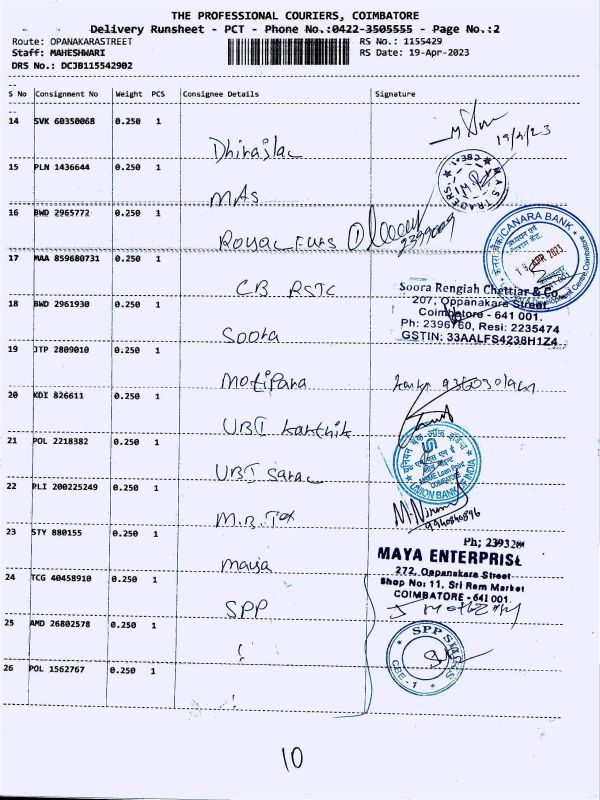 THE PROFESSIONAL COURIERS, COIMBATORE
Delivery Runsheet - PCT - Phone No.:0422-3505555 - Page No.:2
Route: OPANAKARASTREET
RS No.: 1155429
Staff: MAHESHWARI
RS Date: 19-Apr-2023
DRS No.: DCJB115542902
S No Consignment No Weight PCS Consignee Details Signature
14 SVK 60350068 0.250 1
Dhirajlac
19/4/23
15 PLN 1436644 0.250 1
MAS
MAS TRADERS CBE.1
16 BWD 2965772 0.250 1
Royal Furs
2399009
CANARA BANK
केनरा बैंक
19 APR 2023
17 MAA 859680731 0.250 1
CB RSTC
Soora Rengiah Chettiar & Co
207, Oppanakara Street
Coimbatore - 641 001.
Ph: 2396760, Resi: 2235474
GSTIN: 33AALFS4238H1Z4
18 BWD 2961930 0.250 1
Soora
19 JTP 2809010 0.250 1
Motipara
20 KDI 826611 0.250 1
UBI karthik
यूनियन बैंक ऑफ इंडिया
UNION BANK OF INDIA
COIMBATORE
21 POL 2218382 0.250 1
UBI Sarac
22 PLI 200225249 0.250 1
M.B. Tex
23 STY 880155 0.250 1
Maya
MAYA ENTERPRISE
272, Oppanakara Street
Shop No: 11, Sri Ram Market
COIMBATORE - 641 001.
24 TCG 40458910 0.250 1
SPP
25 AMD 26802578 0.250 1
SPP
CBE - 1
26 POL 1562767 0.250 1
10